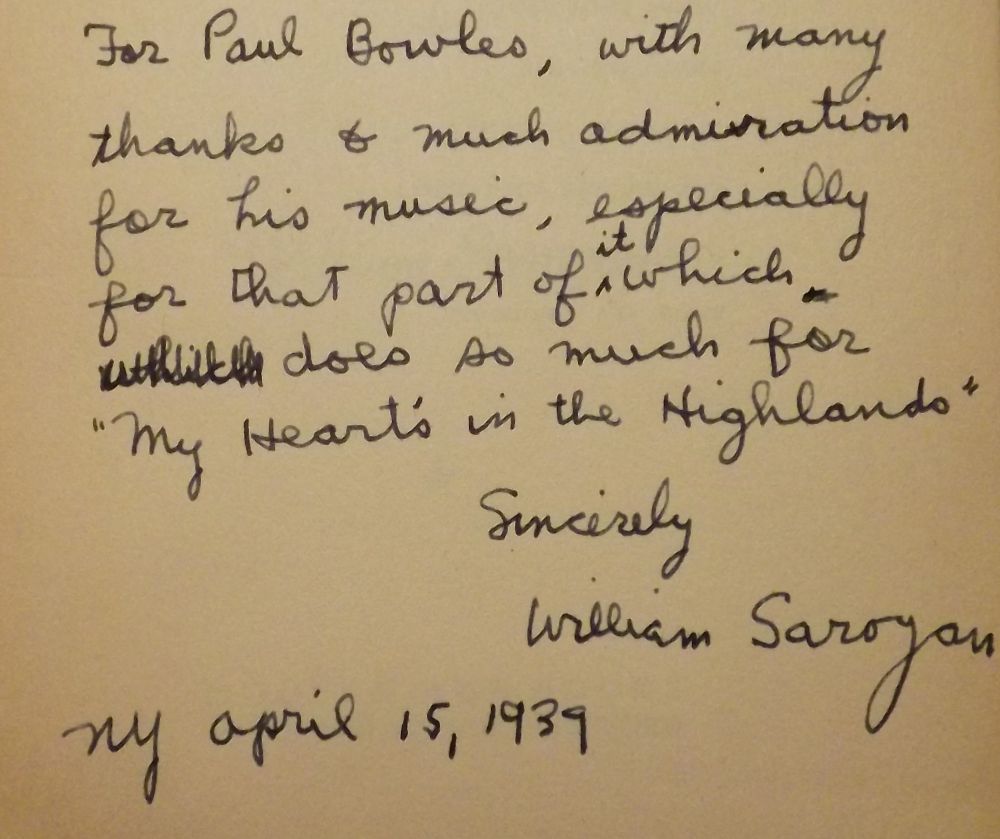 For Paul Bowles, with many
thanks & much admiration
for his music, especially
for that part of it which
does so much for
"My Heart's in the Highlands"
Sincerely
William Saroyan
NY april 15, 1939